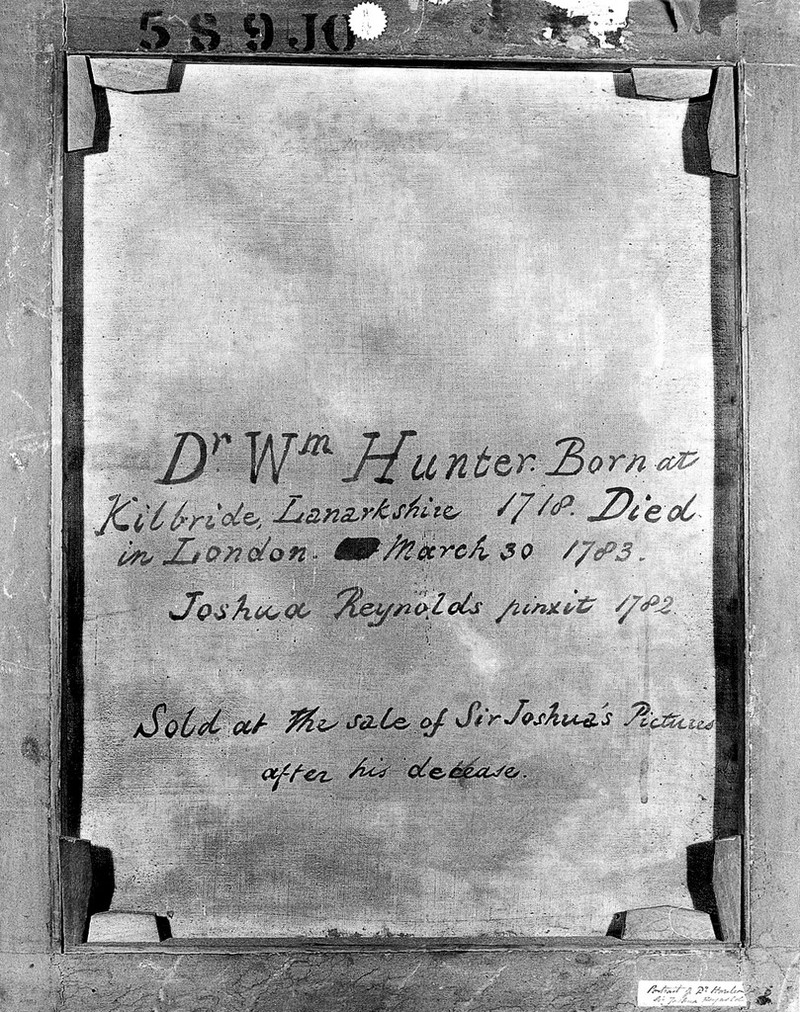 589JO
Dr Wm Hunter. Born at
Kilbride, Lanarkshire 1718. Died
in London. March 30 1783.
Joshua Reynolds pinxit 1782
Sold at the sale of Sir Joshua's Pictures
after his decease.
Portrait of Dr Hunter
Sir Joshua Reynolds